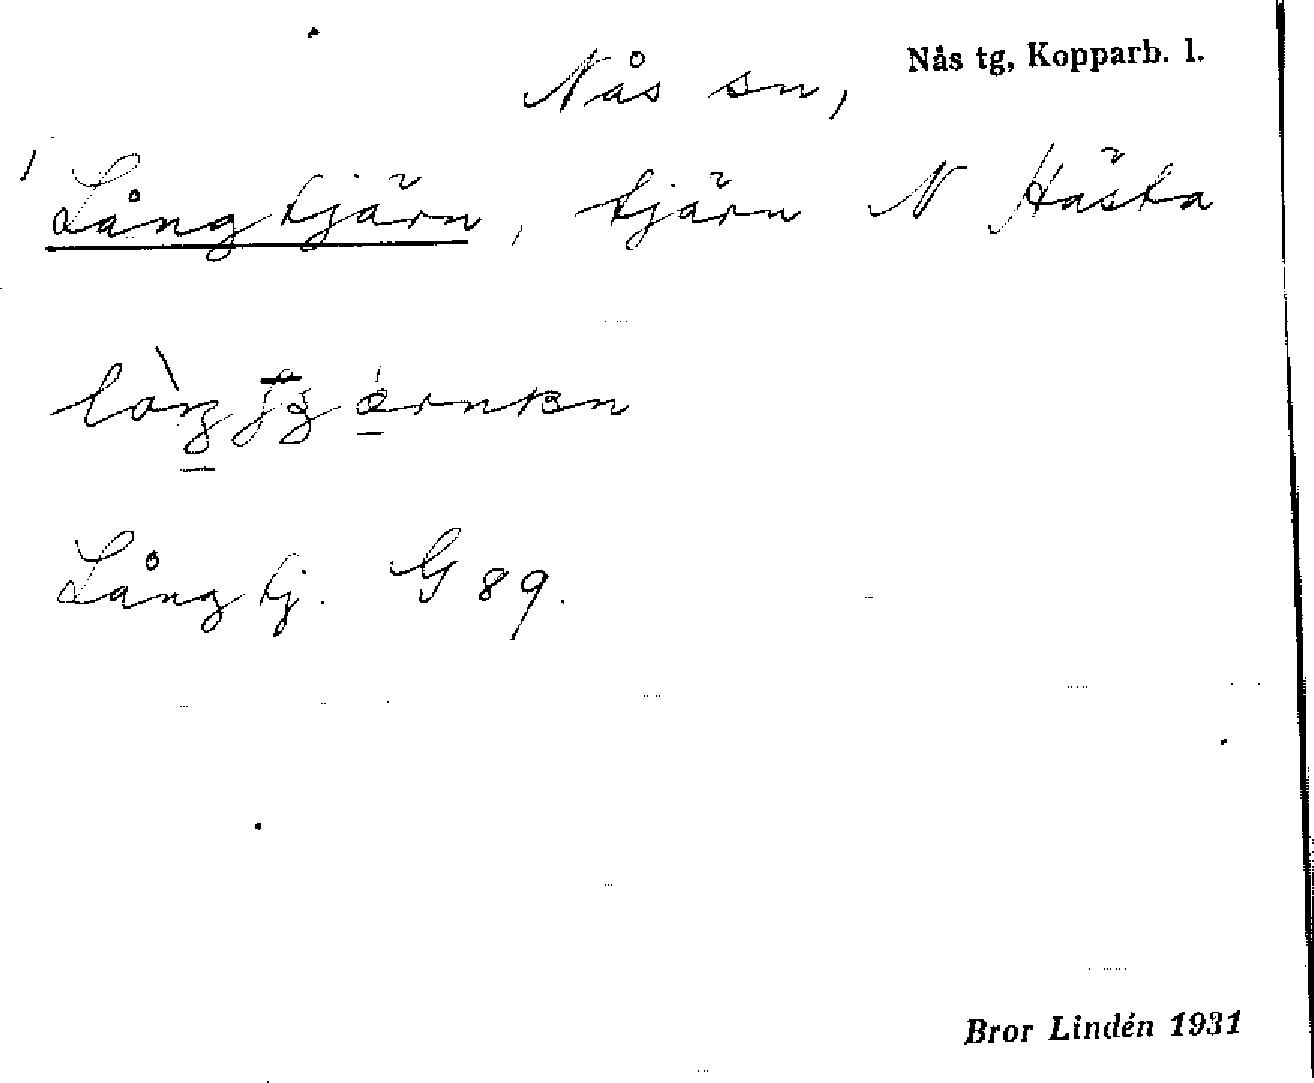 Nås tg, Kopparb. l.
Nås sn,
1 Långtjärn, tjärn N Hästa
Långtj. G 89.
Bror Lindén 1931